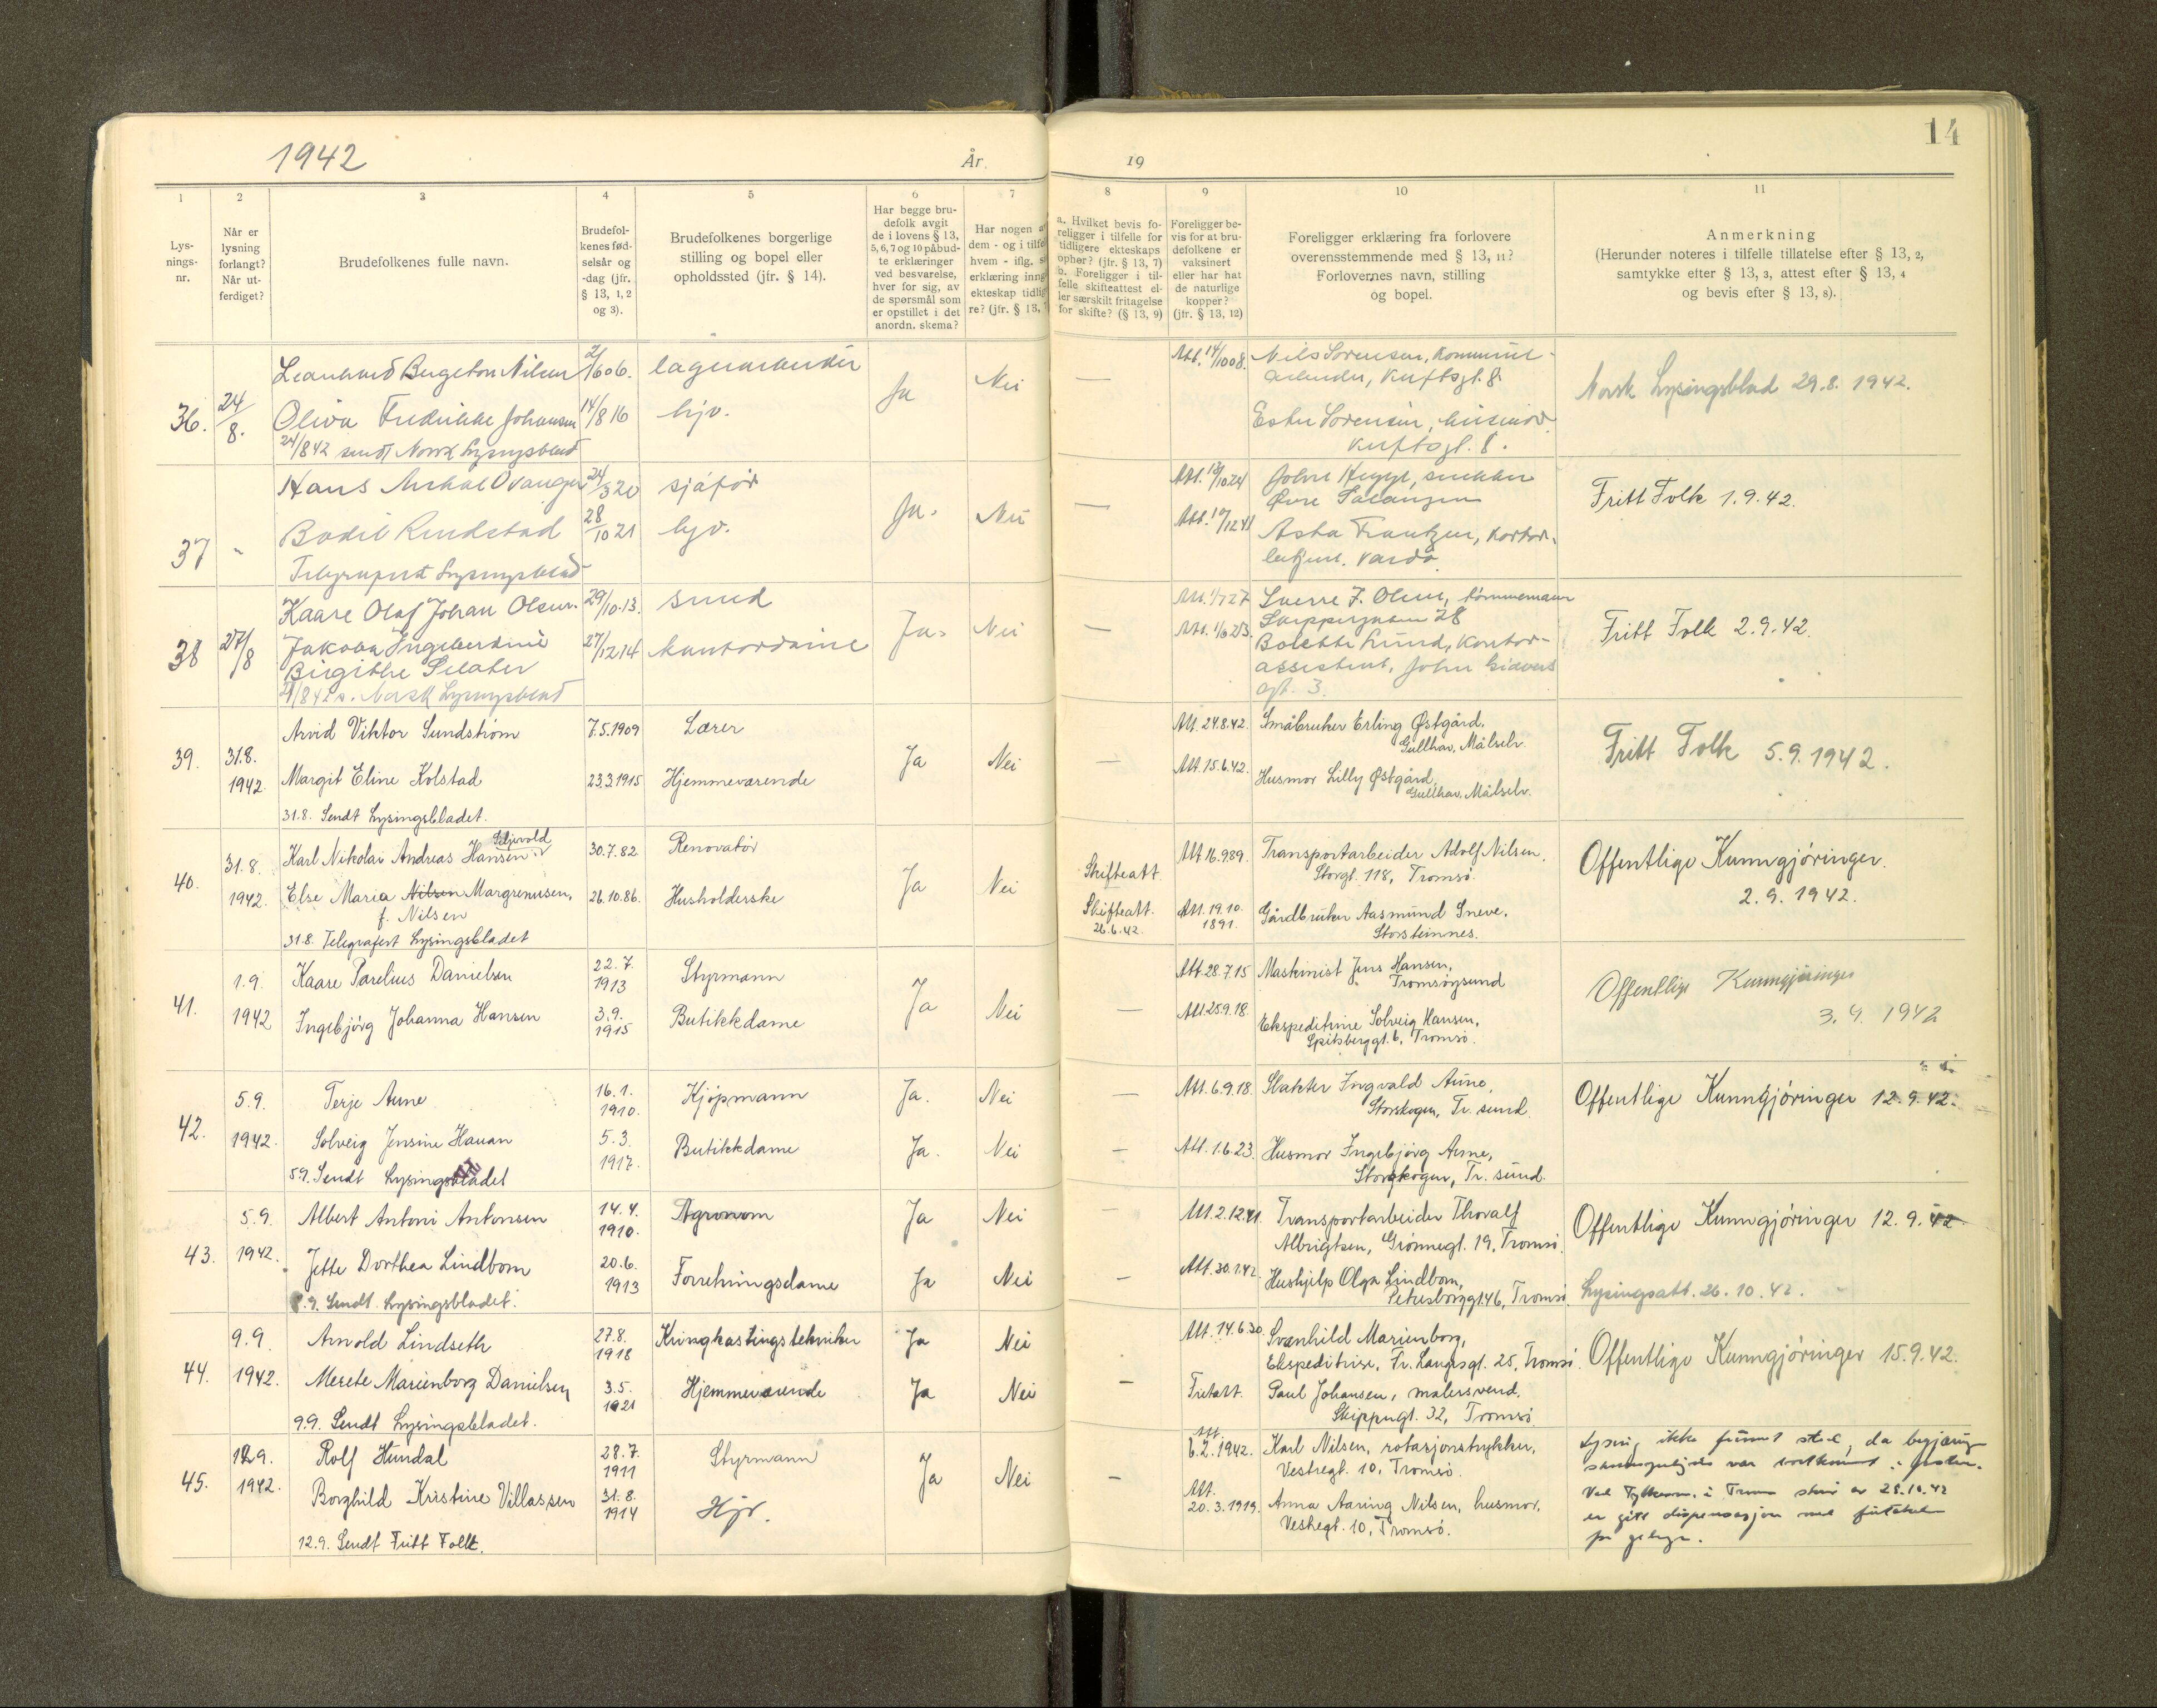 1942
År.
19
14
1
2
3
4
5
6
7
8
9
10
11
Lys-
nings-
nr.
Når er
lysning
forlangt?
Når ut-
ferdiget?
Brudefolkenes fulle navn.
Brudefol-
kenes fød-
selsår og
-dag (jfr.
§ 13, 1, 2
og 3).
Brudefolkenes borgerlige
stilling og bopel eller
opholdssted (jfr. § 14).
Har begge bru-
defolk avgit
de i lovens § 13,
5, 6, 7 og 10 påbud-
te erklæringer
ved besvarelse,
hver for sig, av
de spørsmål som
er opstillet i det
anordn. skema?
Har nogen a
dem - og i tilfe
hvem - iflg. s
erklæring inng
ekteskap tidlig
re? (jfr. § 13,
a. Hvilket bevis fo-
religger i tilfelle for
tidligere ekteskaps
ophør? (jfr. § 13, 7)
b. Foreligger i til-
felle skifteattest el-
ler særskilt fritagelse
for skifte? (§ 13, 9)
Foreligger be-
vis for at bru-
defolkene er
vaksinert
eller har hat
de naturlige
kopper?
(jfr. § 13, 12)
Foreligger erklæring fra forlovere
overensstemmende med § 13, 11?
Forlovernes navn, stilling
og bopel.
Anmerkning
(Herunder noteres i tilfelle tillatelse efter § 13, 2,
samtykke efter § 13, 3, attest efter § 13, 4
og bevis efter § 13, 8).
36. 24/8.
Nilsen 2/606. lagerarbeider
Oliva Fredrikke Johansen 14/8 16 hjv.
24/842 sendt Norsk Lysingsblad
Ja Nei —
Att. 14/1008. Nils Sørensen, kommune-
arbeider,
Ester Sørensen, husmor
Norsk Lysingsblad 29.8. 1942.
37 "
Hans 24/320 sjåfør
Bodil Rindstad 28/10 21 hjv.
Telegrafert Lysingsblad
Ja. Nei —
John Hegge, snekker
Øvre Salangen
Asta Frantzen, kontor-
betjent. Vardø.
Fritt Folk 1.9.42.
38 27/8
Kaare Olaf Johan Olsen. 29/10.13. smed
Jakoba Ingebertine
Birgithe 27/12 14 kontordame
Norsk Lysingsblad
Ja. Nei —
Sverre J. Olsen, tømmermann
Skippergaten 28
Bolette Lund, kontor-
assistent, John Giævers
gt. 3.
Fritt Folk 2.9.42.
39. 31.8. 1942.
Arvid Viktor Sundstrøm 7.5.1909 Lærer
Margit Eline Kolstad 23.3.1915 Hjemmeværende
31.8. Sendt Lysingsbladet.
Ja Nei —
Att. 24.8.42. Småbruker Erling Østgård,
Gullhav, Målselv.
Att. 15.6.42. Husmor Lilly Østgård,
Gullhav, Målselv.
Fritt Folk 5.9.1942.
40. 31.8. 1942.
Seljevold
Karl Nikolai Andreas Hansen 30.7.82 Renovatør
Else Maria Nilsen Margrenusen, 26.10.86. Husholderske
f. Nilsen
31.8. Telegrafert Lysingsbladet
Ja Nei
Skifteatt. Att. 16.9.89. Transportarbeider Adolf Nilsen,
Storgt. 118, Tromsø.
Skifteatt. 26.6.42. Att. 19.10. 1891. Gårdbruker Aasmund Sneve,
Storsteinnes.
Offentlige Kunngjøringer.
2.9.1942.
41. 1.9. 1942
Kaare Parelius Danielsen 22.7. 1913 Styrmann
Ingebjørg Johanna Hansen 3.9. 1915 Butikkdame
Ja Nei —
Att. 28.7.15 Maskinist Jens Hansen,
Tromsøysund
Att. 25.9.18. Ekspeditrise Solveig Hansen,
Spitsberggt. 6, Tromsø.
Offentlige Kunngjøringer
3.9.1942
42. 5.9. 1942.
Terje Aune 16.1. 1910. Kjøpmann Ja. Nei —
Solveig Jensine Hauan 5.3. 1917. Butikkdame Ja. Nei —
5.9. Sendt Lysingsbladet
Att. 6.9.18. Slakter Ingvald Aune,
Storskogen, Tr. sund.
Att. 1.6.23. Husmor Ingebjørg Aune,
Storskogen, Tr. sund.
Offentlige Kunngjøringer 12.9.42.
43. 5.9. 1942.
Albert Antoni Antonsen 14.4. 1910. Agronom Ja Nei —
Jette Dorthea Lindbom 20.6. 1913 Forretningsdame Ja Nei —
5.9. Sendt Lysingsbladet.
Att. 2.12.41. Transportarbeider Thoralf
Albrigtsen, Grønnegt. 19, Tromsø.
Att. 30.1.42. Hushjelp Olga Lindbom,
Petersborggt. 46, Tromsø.
Offentlige Kunngjøringer 12.9.42
Lysingsatt. 26.10.42.
44. 9.9. 1942.
Arnold Lindseth 27.8. 1918 Kringkastingstekniker Ja Nei
Merete Marienborg Danielsen 3.5. 1921 Hjemmeværende Ja Nei —
9.9. Sendt Lysingsbladet.
Att. 14.6.30. Svanhild Marienborg,
Ekspeditrise, Fr. Langesgt. 25, Tromsø.
Fritatt. Paul Johansen, malersvend,
Skippergt. 32, Tromsø
Offentlige Kunngjøringer 15.9.42.
45. 12.9. 1942.
Rolf Hundal 28.7. 1911 Styrmann
Borghild Kristine Villassen 31.8. 1914 Hjv.
12.9. Sendt Fritt Folk.
Ja Nei —
Att. 6.2.1942. Karl Nilsen, rotasjonstrykker,
Vestregt. 10, Tromsø.
Att. 20.3.1919. Anna Aaring Nilsen, husmor,
Vestregt. 10, Tromsø.
Lysing ikke funnet sted, da begjæring
var bortkommet i posten.
28.10.42
er gitt dispensasjon